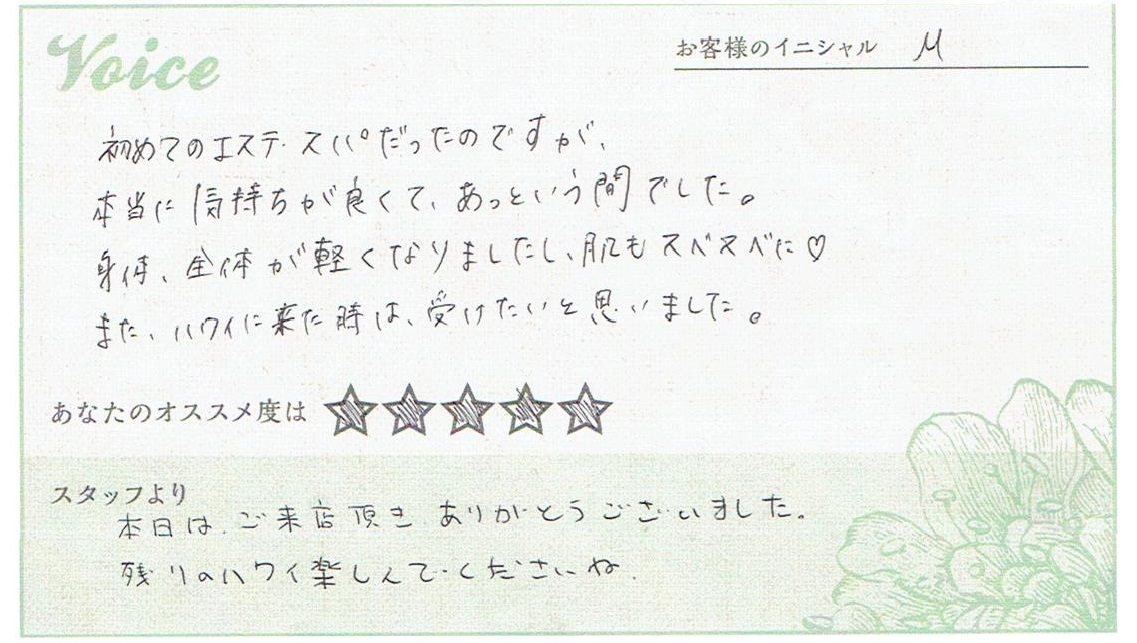 Voice
お客様のイニシャル M
初めてのエステ・スパだったのですが、
本当に気持ちが良くて、あっという間でした。
身体、全体が軽くなりましたし、肌もスベスベに♡
また、ハワイに来た時は、受けたいと思いました。
あなたのオススメ度は ★★★★★
スタッフより
本日は、ご来店頂き、ありがとうございました。
残りのハワイ楽しんで、くださいね。